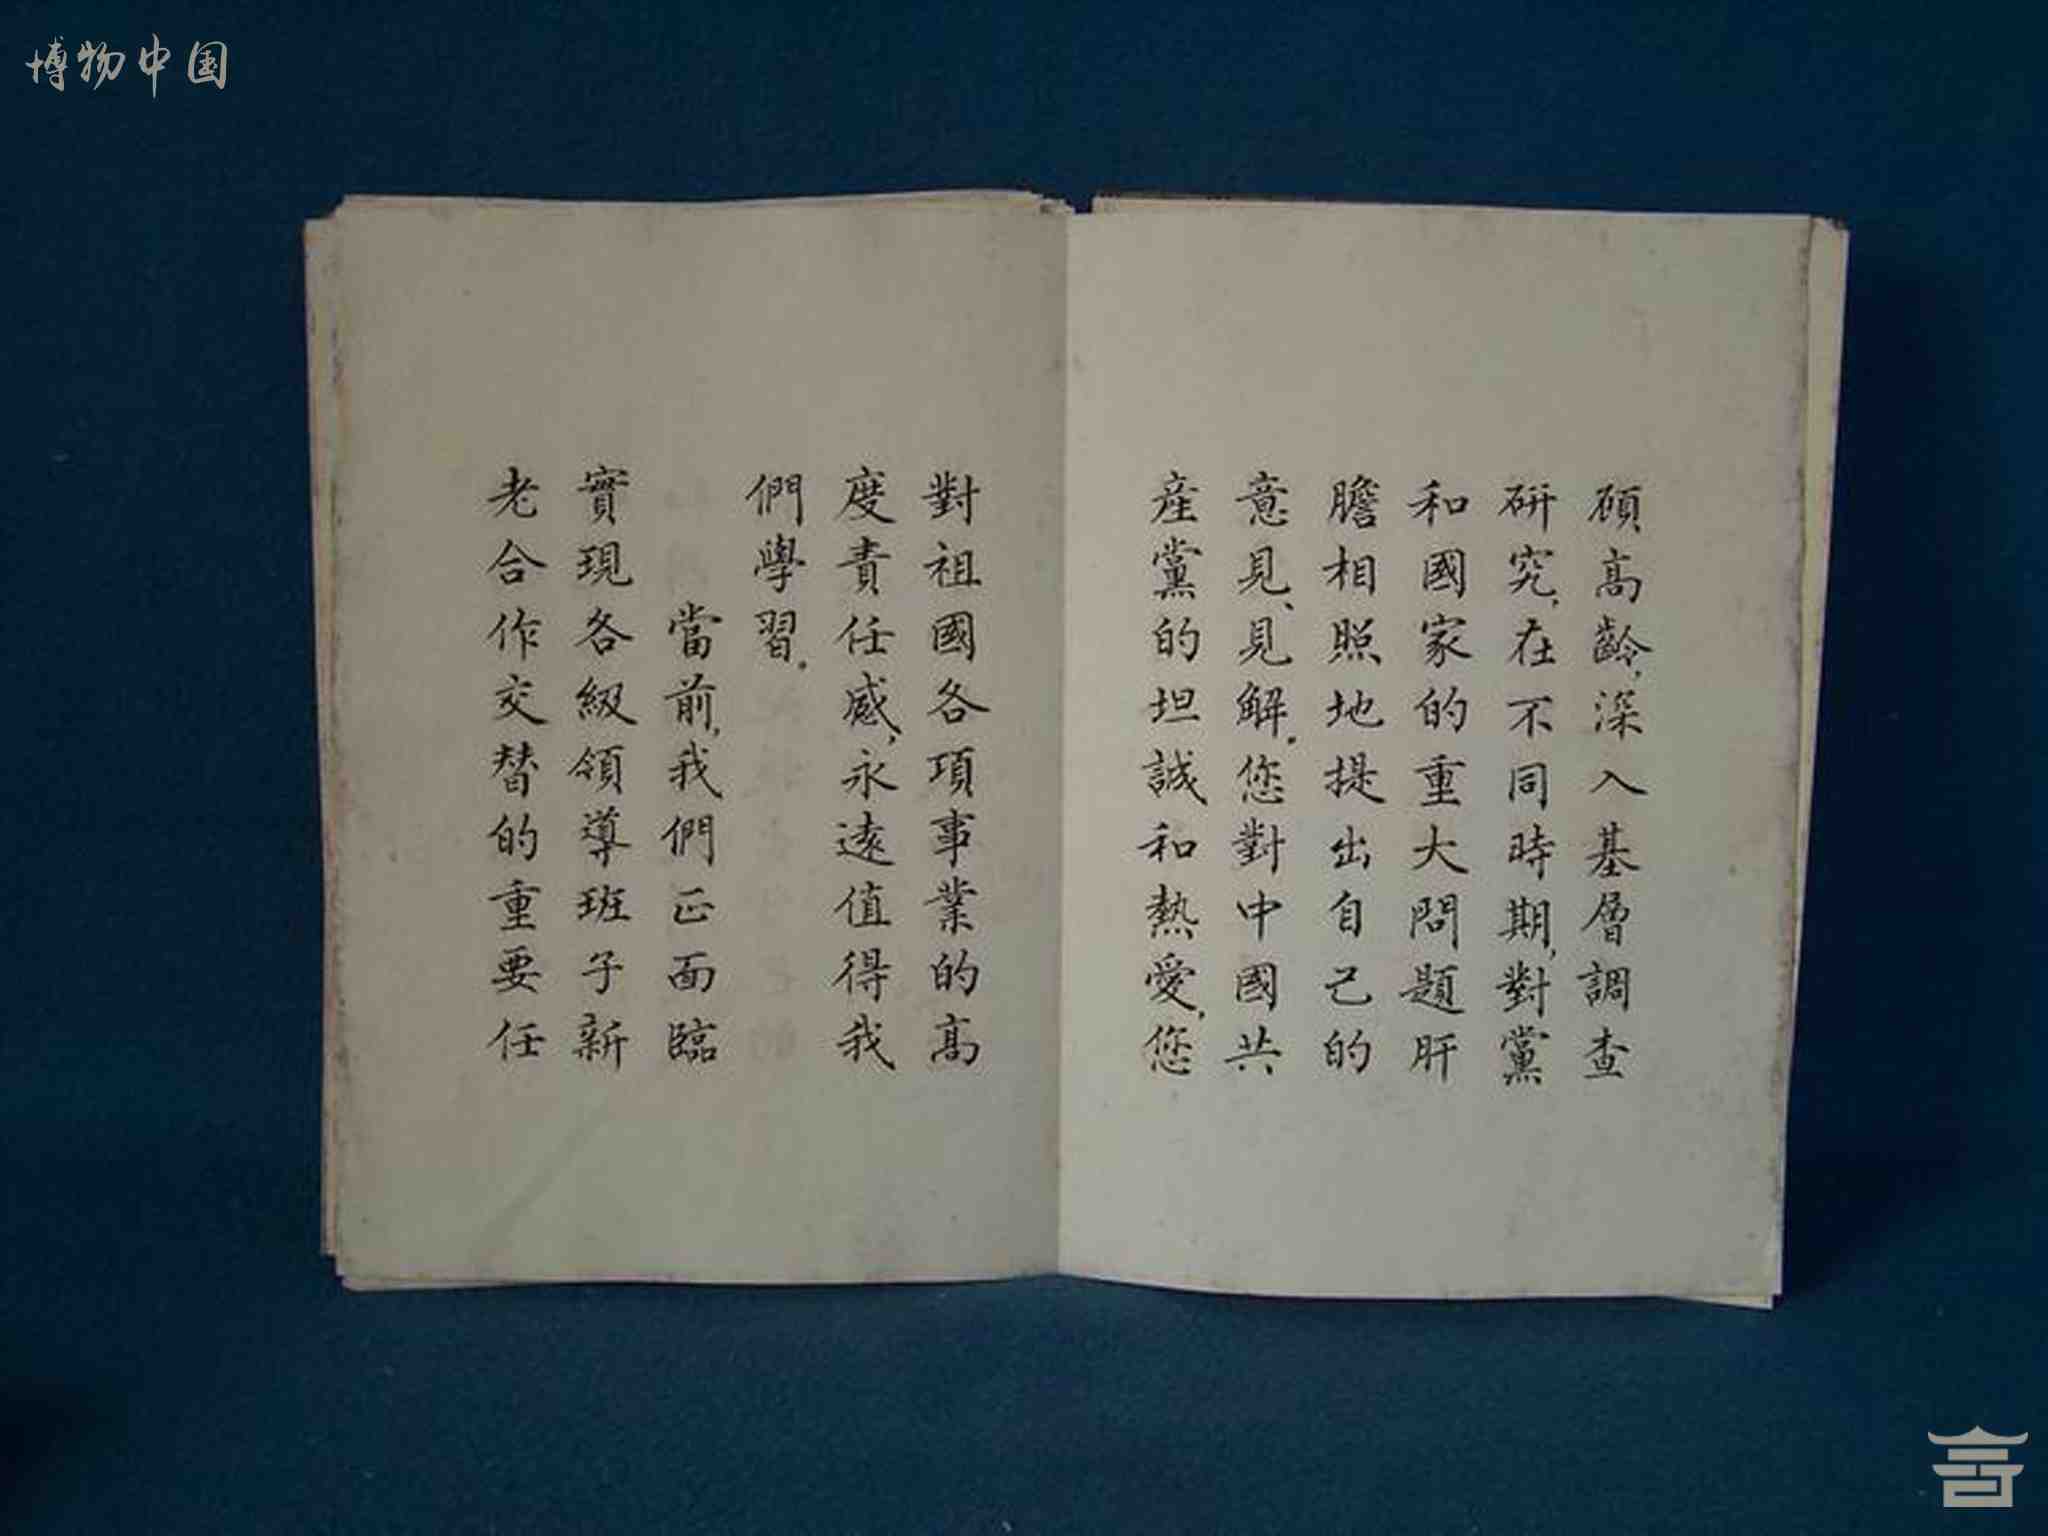 博物中国
顾高齡，深入基層調查
研究，在不同時期，對黨
和國家的重大問題肝
膽相照地提出自己的
意見、見解。您對中國共
産黨的坦誠和熱愛，您
對祖國各項事業的高
度責任感，永遠值得我
們學習。
當前，我們正面臨
實現各級領導班子新
老合作交替的重要任